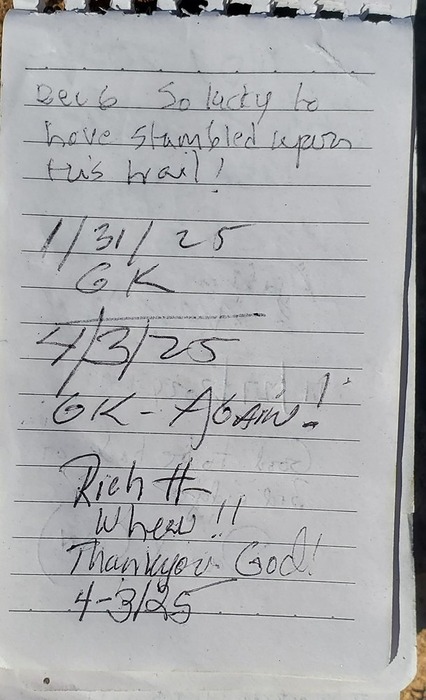 Dec 6 So lucky to
have stumbled upon
this trail!
1/31/25
GK
4/3/25
GK - AGAIN!
Rich H
Whew!!
Thankyou God!
4-3/25